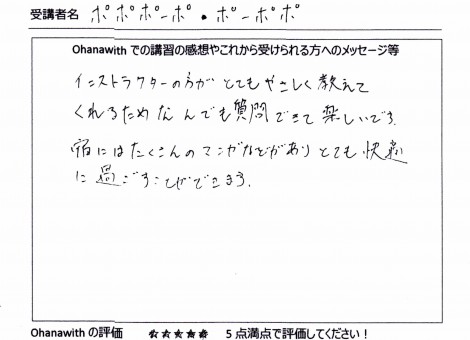 受講者名 ポポポーポ・ポーポポ
Ohanawithでの講習の感想やこれから受けられる方へのメッセージ等
インストラクターの方がとてもやさしく教えて
くれるためなんでも質問できて楽しいです。
宿にはたくさんのマンガなどがありとても快適
に過ごすことができます。
Ohanawithの評価 ★★★★★ 5点満点で評価してください！